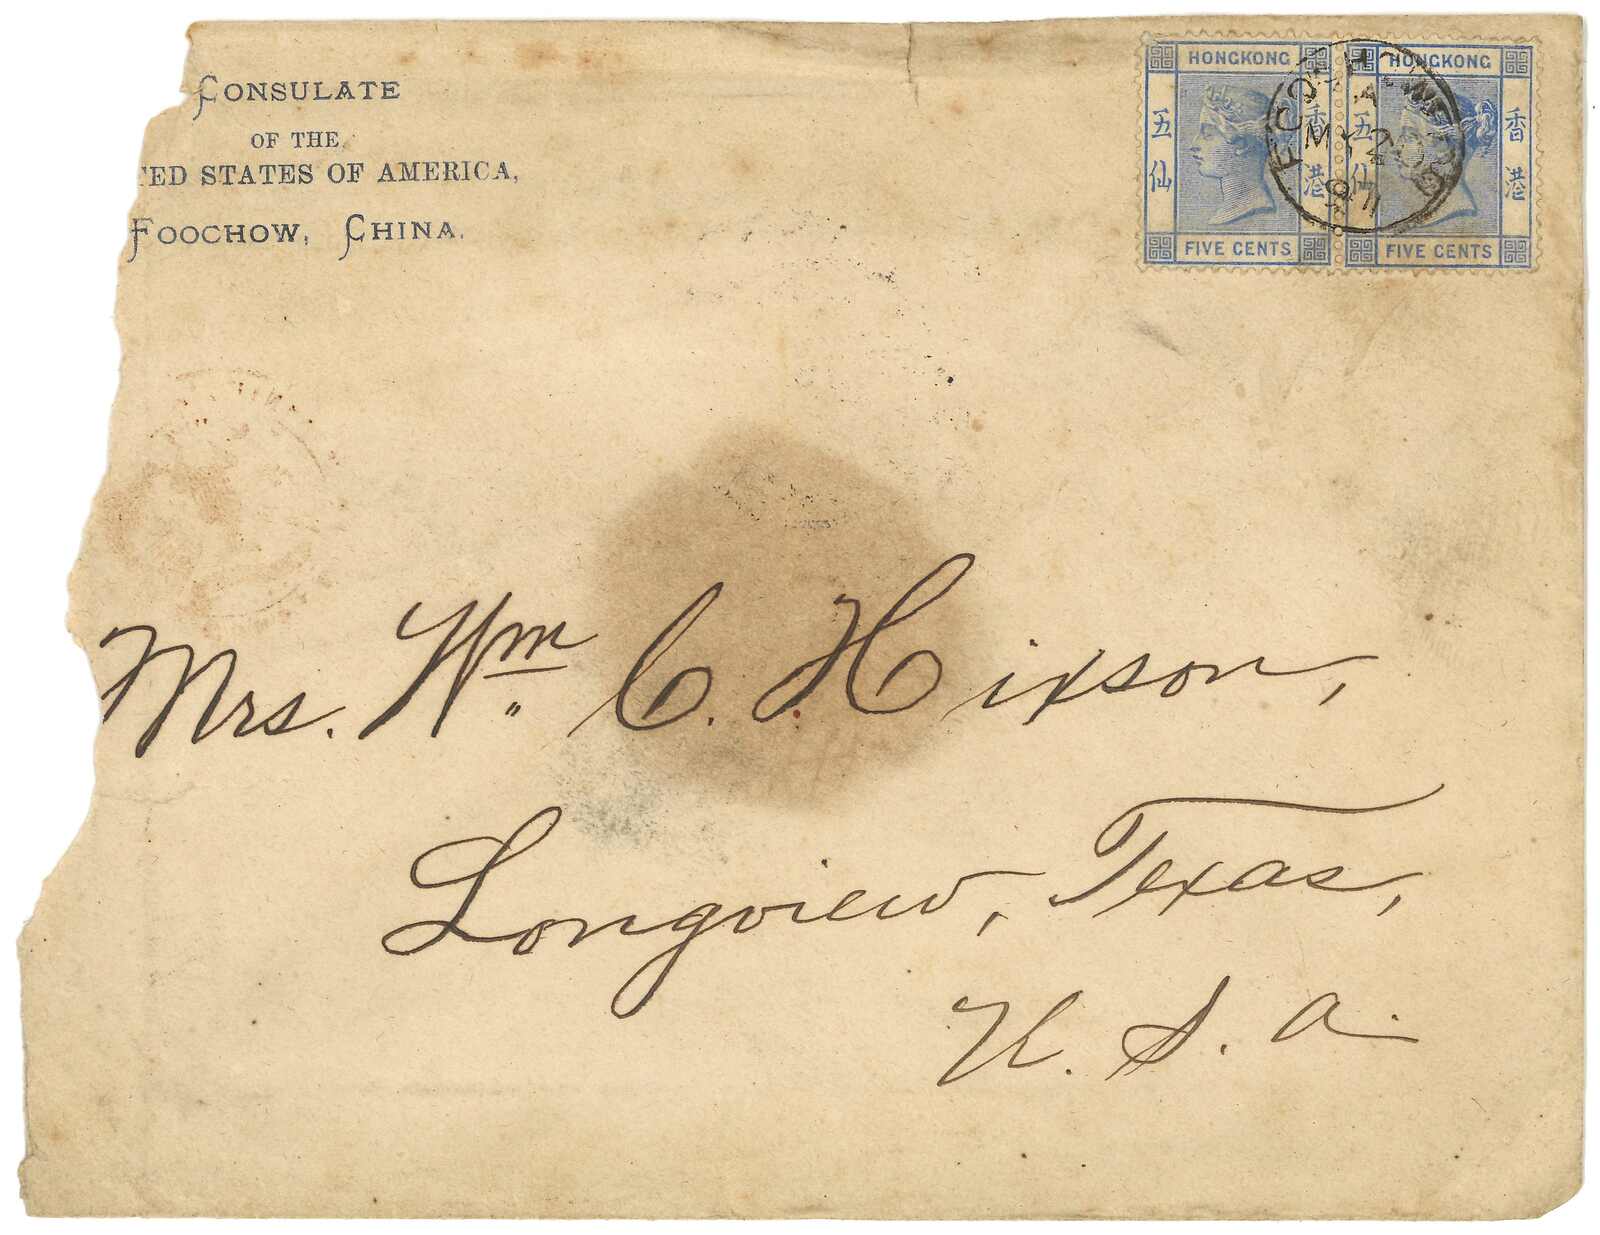 CONSULATE
OF THE
TED STATES OF AMERICA,
FOOCHOW, CHINA.
HONGKONG
五仙
香港
FIVE CENTS
HONGKONG
五仙
香港
FIVE CENTS
FOOCHOW
A
MY
Mrs. Wm. C. Hixson,
Longview, Texas,
U. S. A.